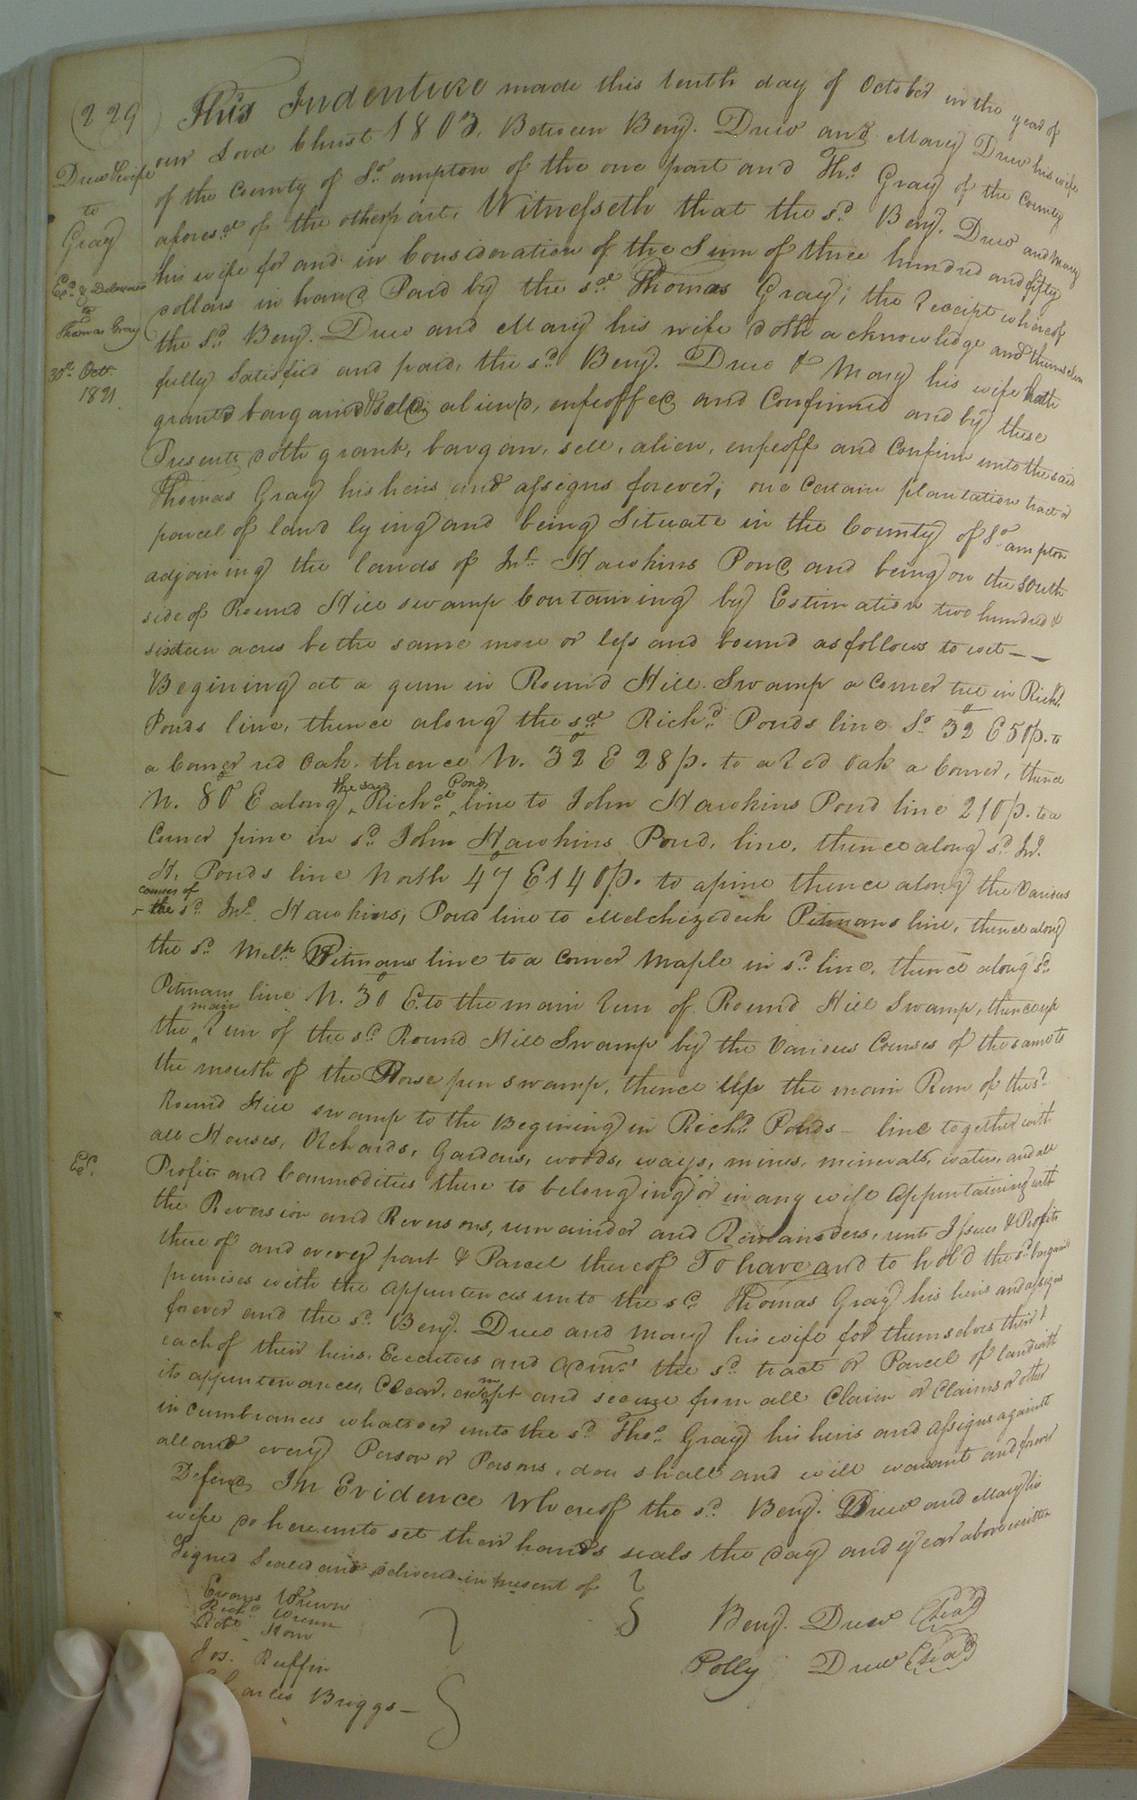 (229
Drew & wife
to
Gray
Ex.d & Delivered
to
Thomas Gray
30th Octr.
1821
This Indenture made this tenth day of October in the year of
our Lord Christ 1803, Between Benj. Drew and Mary Drew his wife
of the County of So.ampton of the one part and Thos. Gray of the County
afores.d of the other part, Witnesseth that the sd. Benj. Drew and Mary
his wife for and in Consideration of the Sum of three hundred and fifty
dollars in hand Paid by the sd. Thomas Gray; the Receipt whereof
the sd. Benj. Drew and Mary his wife doth acknowledge and themselves
fully Satisfied and paid, the sd. Benj. Drew & Mary his wife hath
granted bargained Sold, aliened, enfeoffed and Confirmed and by these
Presents doth grant, bargan, sell, alien, enfeoff and Confirm unto the said
Thomas Gray his heirs and assigns forever; one Certain plantation tract or
parcel of land lying and being Situate in the County of So.ampton
adjoining the lands of Jno. Hawkins Pond and being on the South
side of Round Hill swamp Containing by Estimation two hundred &
sixteen acres be the same more or less and bound as follows to wit——
Begining at a gum in Round Hill Swamp a Corner tree in Richd.
Ponds line, thence along the sd. Richd. Ponds line So. 32° E 50p. to
a Corner red Oak, thence N. 32° E 28p. to a Red Oak a Corner, thence
N. 80° E along the said Richd. Ponds line to John Hawkins Pond line 210p. to a
Corner pine in sd. John Hawkins Pond, line, thence along sd. Jno.
H. Ponds line North 47° E 140p. to a pine thence along the Various
courses of the sd. Jno. Hawkins, Pond line to Melchizedeck Pitmans line, thence along
the sd. Melk. Pitmans line to a Corner Maple in sd. line, thence along sd.
Pitmans line N. 30° E. to the main Run of Round Hill Swamp, thence up
the main Run of the sd. Round Hill Swamp by the Various Courses of the same to
the mouth of the Horse pen swamp, thence Up the main Run of the sd.
Round Hill swamp to the Begining in Richd. Ponds – line together with
all Houses, Orchards, Gardens, woods, ways, mines, minerals, waters, and all
Ex.
Profits and Commodities there to belonging or in any wise Appurtaining with
the Reversion and Reversons, remainder and Remainders, rents Issues & Profits
there of and every part & Parcel thereof To have and to hold the sd. bargaind
premises with the appurtences unto the sd. Thomas Gray his heirs and assigns
forever and the sd. Benj. Drew and Mary his wife for themselves their &
each of their heirs. Executors and Admrs. the sd. tract or Parcel of land with
its appurtenances, Clear, exempt and secure from all Claim or Claims or other
incumbrances whatsoer unto the sd. Thos. Gray his heirs and Assigns against
all and every Person or Persons, don shall and will warrant and forever
Defend In Evidence Whereof the sd. Benj. Drew and Mary his
wife do hereunto set their hands seals the day and year above written
Signed Sealed and delivered in present of
Evans Wrenn
Richd. Wrenn
Jos. Ruffin
Charles Briggs –
Benj. Drew (Seal)
Polly Drew (Seal)